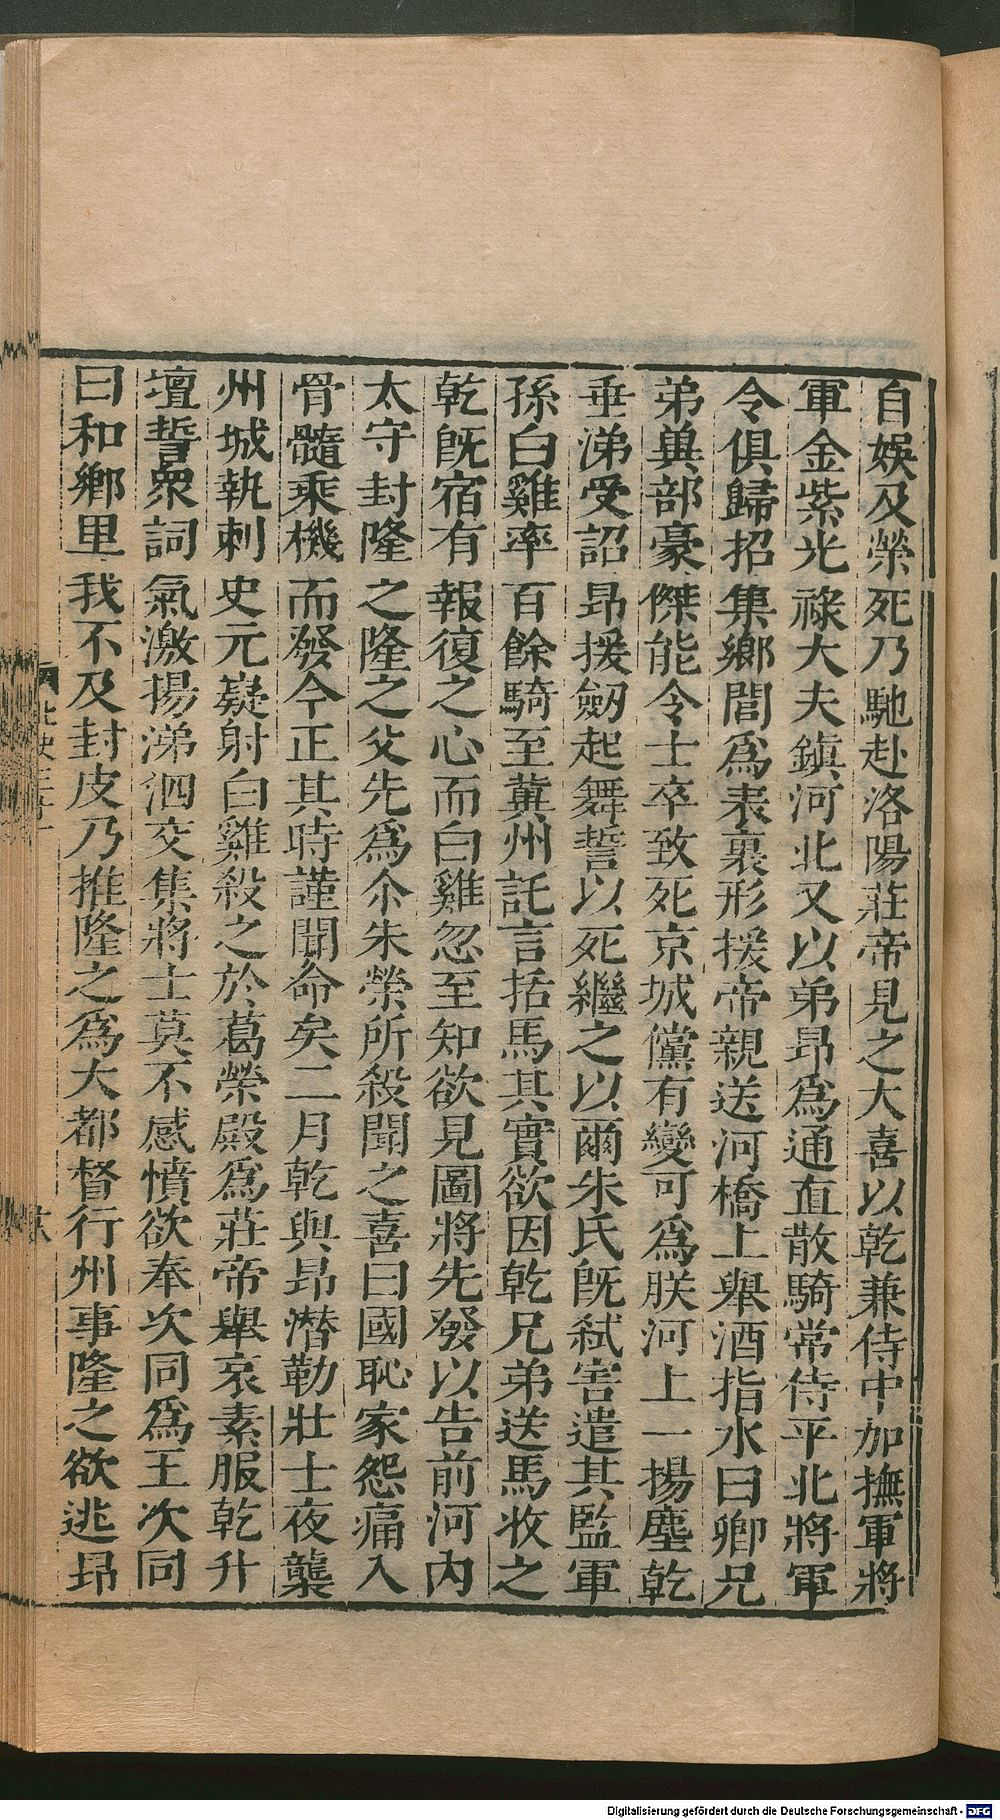 自娛及榮死乃馳赴洛陽莊帝見之大喜以乾兼侍中加撫軍將
軍金紫光祿大夫鎮河北又以弟昂爲通直散騎常侍平北將軍
令俱歸招集鄉閭爲表裏形援帝親送河橋上舉酒指水曰卿兄
弟兾部豪傑能令士卒致死京城儻有變可爲朕河上一揚塵乾
垂涕受詔昂援劒起舞誓以死繼之以爾朱氏旣弑害遣其監軍
孫白雞率百餘騎至冀州託言括馬其實欲因乾兄弟送馬收之
乾旣宿有報復之心而白雞忽至知欲見圖將先發以告前河內
太守封隆之隆之父先爲尒朱榮所殺聞之喜曰國恥家怨痛入
骨髓乘機而發今正其時謹聞命矣二月乾與昂潛勒壯士夜襲
州城執刺史元嶷射白雞殺之於葛榮殿爲莊帝舉哀素服乾升
壇誓衆詞氣激揚涕泗交集將士莫不感憤欲奉次同爲王次同
曰和鄉里我不及封皮乃推隆之爲大都督行州事隆之欲逃昂
北史三十一
Digitalisierung gefördert durch die Deutsche Forschungsgemeinschaft - DFG